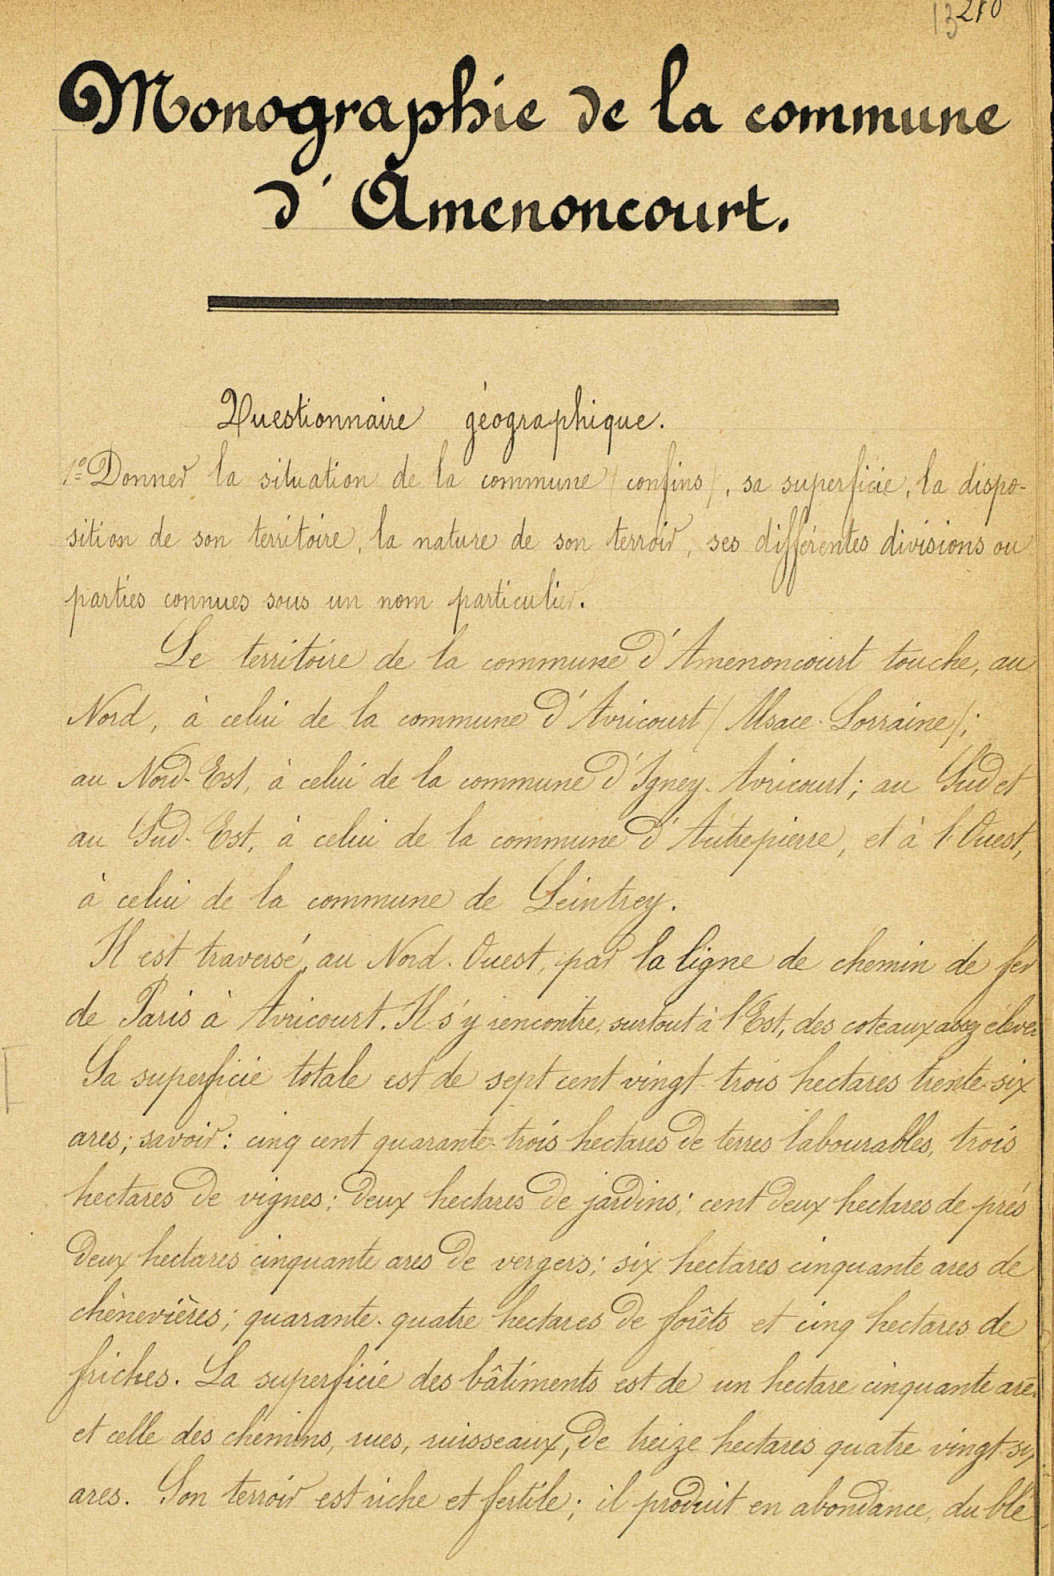 13 210
Monographie de la commune
d'Amenoncourt.
Questionnaire géographique.
1º Donner la situation de la commune (confins), sa superficie, la dispo-
sition de son territoire, la nature de son terroir, ses différentes divisions ou
parties connues sous un nom particulier.
Le territoire de la commune d'Amenoncourt touche, au
Nord, à celui de la commune d'Avricourt (Alsace-Lorraine);
au Nord-Est, à celui de la commune d'Igney-Avricourt; au Sud et
au Sud-Est, à celui de la commune d'Autrepierre, et à l'Ouest,
à celui de la commune de Leintrey.
Il est traversé, au Nord-Ouest, par la ligne de chemin de fer
de Paris à Avricourt. Il s'y rencontre, surtout à l'Est, des coteaux assez élevés
Sa superficie totale est de sept cent vingt-trois hectares trente-six
ares; savoir: cinq cent quarante-trois hectares de terres labourables, trois
hectares de vignes; deux hectares de jardins; cent deux hectares de prés
deux hectares cinquante ares de vergers; six hectares cinquante ares de
chènevières; quarante-quatre hectares de forêts et cinq hectares de
friches. La superficie des bâtiments est de un hectare cinquante ares
et celle des chemins, rues, ruisseaux, de treize hectares quatre vingt-six
ares. Son terroir est riche et fertile; il produit en abondance, du blé